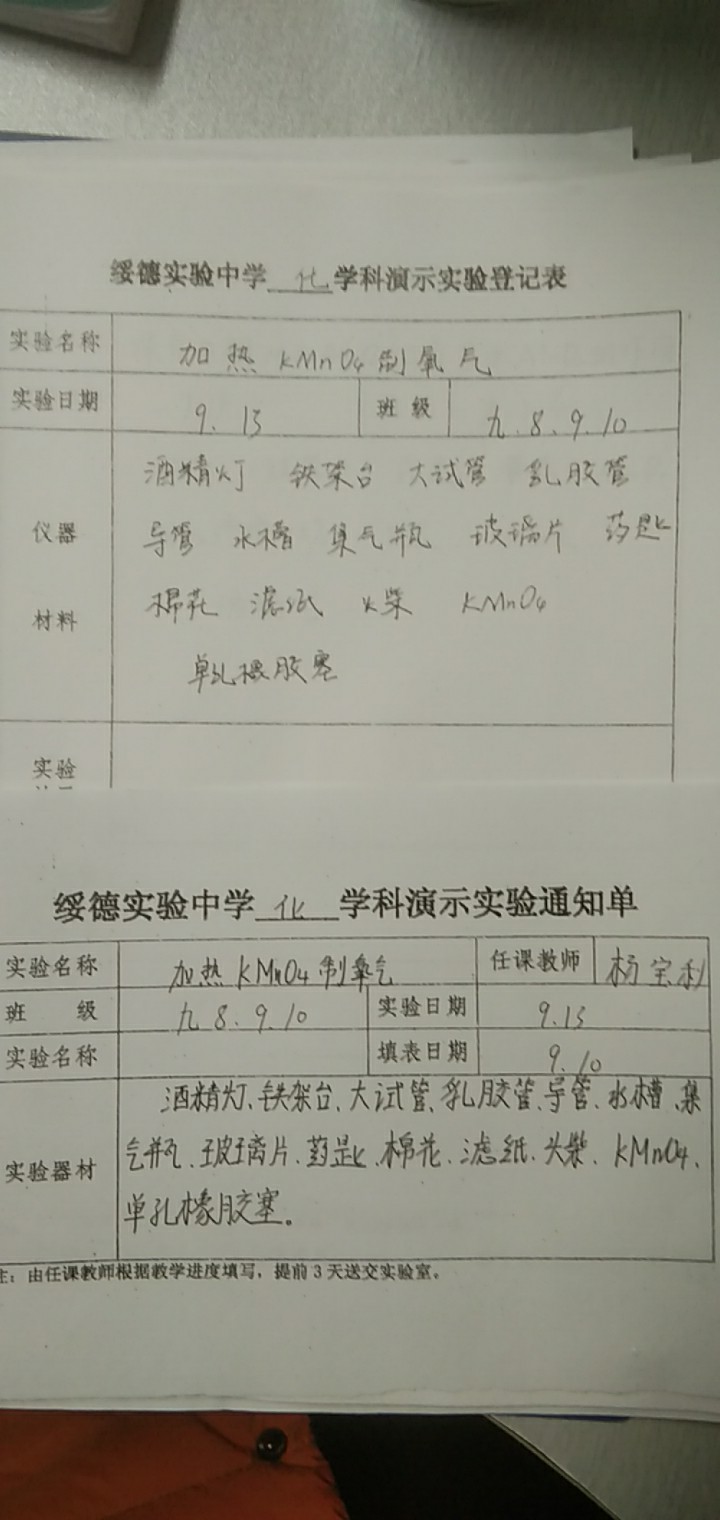 绥德实验中学 化 学科演示实验登记表
实验名称 加热 KMnO4 制氧气
实验日期 9.13 班级 九.8.9.10
仪器 材料
酒精灯 铁架台 大试管 乳胶管
导管 水槽 集气瓶 玻璃片 药匙
棉花 滤纸 火柴 KMnO4
单孔橡胶塞
实验
绥德实验中学 化 学科演示实验通知单
实验名称 加热 KMnO4 制氧气 任课教师 杨宝利
班 级 九 8.9.10 实验日期 9.13
实验名称 填表日期 9.10
实验器材
酒精灯、铁架台、大试管、乳胶管、导管、水槽、集
气瓶、玻璃片、药匙、棉花、滤纸、火柴、KMnO4、
单孔橡胶塞。
注：由任课教师根据教学进度填写，提前 3 天送交实验室。